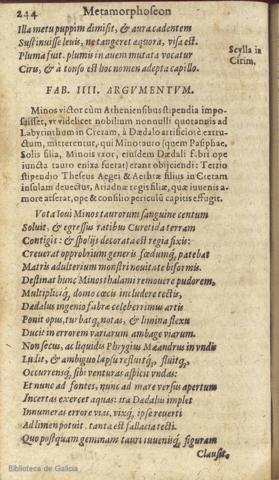 244 Metamorphoseon
Illa metu puppim dimisit, & aura cadentem
Sustinuisse levis, ne tangeret æquora, visa est.
Pluma fuit. plumis in avem mutata vocatur
Ciris, & à tonso est hoc nomen adepta capillo.
Scylla in
Cirim.
FAB. IIII. ARGVMENTVM.
Minos victor cùm Atheniensibus stipendia impo-
suisset, vt videlicet nobilium nonnulli quotannis ad
Labyrinthum in Cretam, à Dædalo artificiosè extru-
ctum, mitterentur, qui Minotauro (quem Pasiphae,
Solis filia, Minois vxor, eiusdem Dædali fabri ope
iuncta tauro enixa fuerat) erant obijciendi: Tertio
stipendio Theseus Aegei & Aethræ filius in Cretam
insulam devectus, Ariadnæ regis filiæ, quæ iuvenis a-
more arserat, ope & consilio periculũ capitis effugit.
Vota Iovi Minos taurorum sanguine centum
Soluit, & egressus ratibus Curetida terram
Contigit: & spolijs decorata est regia fixis:
Creverat opprobrium generis fœdumq́, patebat
Matris adulterium monstri novitate biformis.
Destinat hunc Minos thalami removere pudorem,
Multipliciq́, domo cæcis includere tectis,
Dædalus ingenio fabræ celeberrimus artis
Ponit opus, turbatq́, notas, & limina flexu
Ducit in errorem variarum ambage viarum.
Non secus, ac liquidis Phrygius Mæandrus in vndis
Ludit, & ambiguo lapsu refluitq́, fluitq́,
Occurrensq́, sibi venturas aspicit vndas:
Et nunc ad fontes, nunc ad mare versus apertum
Incertas exercet aquas: ita Dædalus implet
Innumeras errore vias. vixq́, ipse reverti
Ad limen potuit. tanta est fallacia tecti.
Quo postquam geminam tauri iuvenisq́, figuram
Clausit,
Biblioteca de Galicia